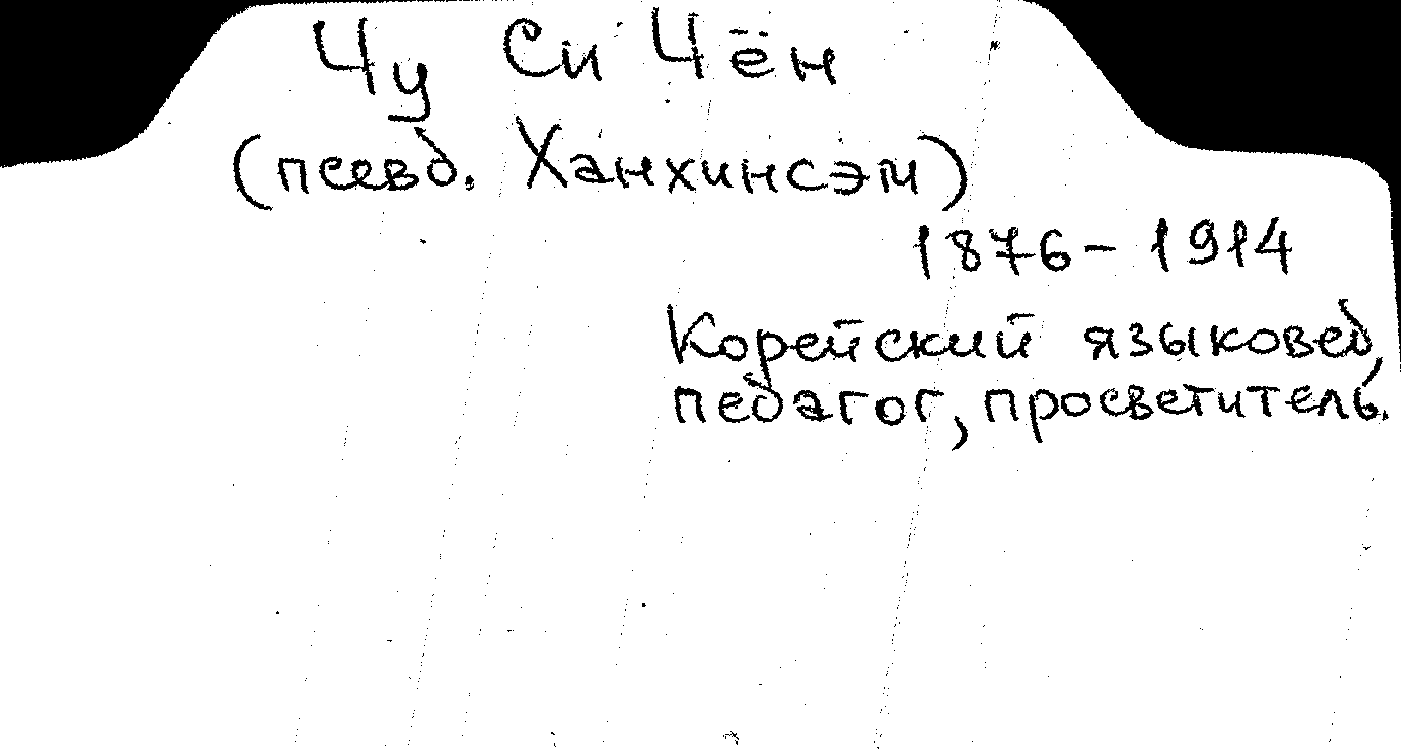 Чу Си Чён
(псевд. Ханхинсэм)
1876-1914
Корейский языковед,
педагог, просветитель.